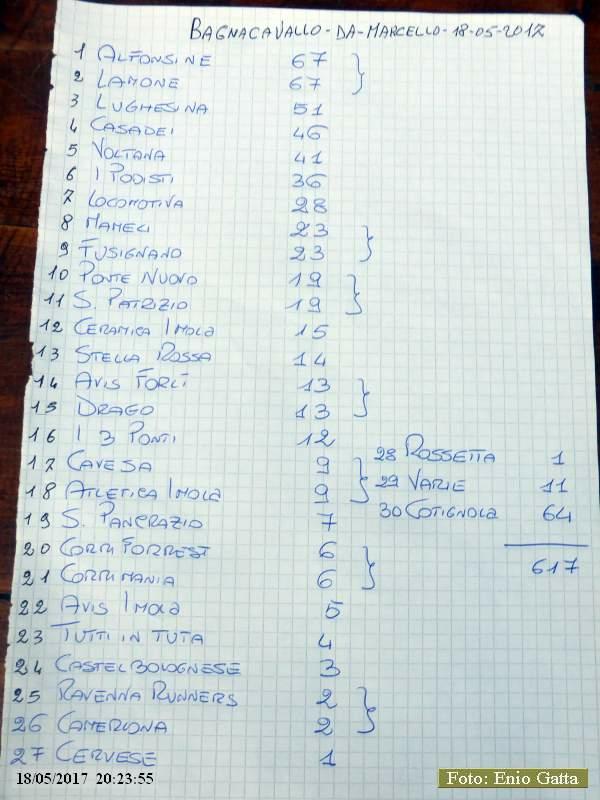 BAGNACAVALLO-DA-MARCELLO-18-05-2017
1 ALFONSINE 67
2 LAMONE 67
3 LUGHESINA 51
4 CASADEI 46
5 VOLTANA 41
6 I PODISTI 36
7 LOCOMOTIVA 28
8 MAMELI 23
9 FUSIGNANO 23
10 PONTE NUOVO 19
11 S. PATRIZIO 19
12 CERAMICA IMOLA 15
13 STELLA ROSSA 14
14 AVIS FORLÌ 13
15 DRAGO 13
16 I 3 PONTI 12
17 CAVESA 9
18 ATLETICA IMOLA 9
19 S. PANCRAZIO 7
20 CORRI FORREST 6
21 CORRIMANIA 6
22 AVIS IMOLA 5
23 TUTTI IN TUTA 4
24 CASTELBOLOGNESE 3
25 RAVENNA RUNNERS 2
26 CAMERLONA 2
27 CERVESE 1
28 ROSSETTA 1
29 VARIE 11
30 COTIGNOLA 64
617
18/05/2017 20:23:55
Foto: Enio Gatta